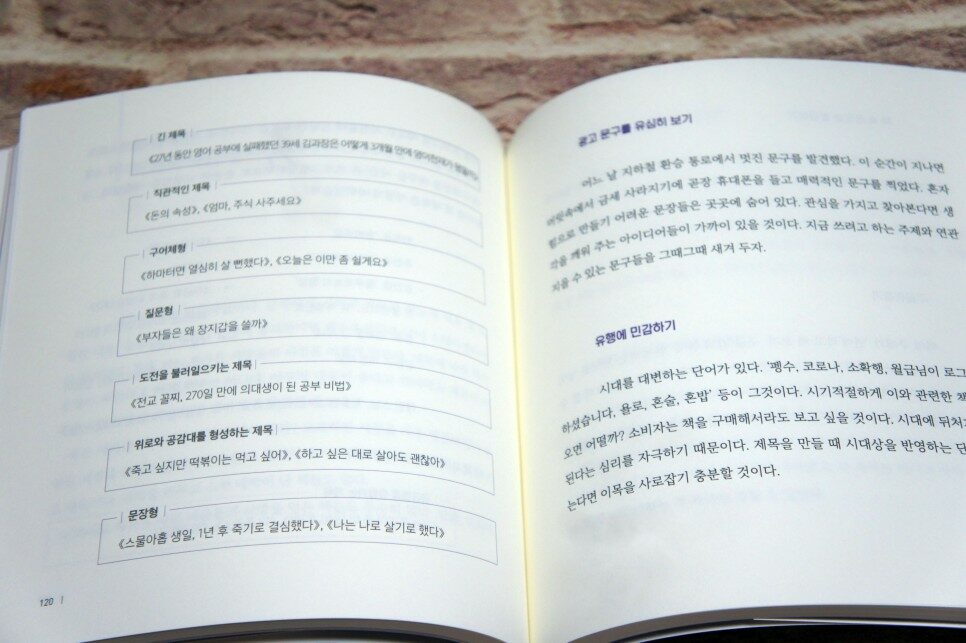 긴 제목
《27년 동안 영어 공부에 실패했던 39세 김과장은 어떻게 3개월 만에 영어천재가 됐을까》
직관적인 제목
《돈의 속성》, 《엄마, 주식 사주세요》
구어체형
《하마터면 열심히 살 뻔했다》, 《오늘은 이만 좀 쉴게요》
질문형
《부자들은 왜 장지갑을 쓸까》
도전을 불러일으키는 제목
《전교 꼴찌, 270일 만에 의대생이 된 공부 비법》
위로와 공감대를 형성하는 제목
《죽고 싶지만 떡볶이는 먹고 싶어》, 《하고 싶은 대로 살아도 괜찮아》
문장형
《스물아홉 생일, 1년 후 죽기로 결심했다》, 《나는 나로 살기로 했다》
120
광고 문구를 유심히 보기
어느 날 지하철 환승 통로에서 멋진 문구를 발견했다. 이 순간이 지나면
머릿속에서 금세 사라지기에 곧장 휴대폰을 들고 매력적인 문구를 찍었다. 혼자
힘으로 만들기 어려운 문장들은 곳곳에 숨어 있다. 관심을 가지고 찾아본다면 생
각을 깨워 주는 아이디어들이 가까이 있을 것이다. 지금 쓰려고 하는 주제와 연관
지을 수 있는 문구들을 그때그때 새겨 두자.
유행에 민감하기
시대를 대변하는 단어가 있다. '펭수, 코로나, 소확행, 월급님이 로그
하셨습니다, 욜로, 혼술, 혼밥' 등이 그것이다. 시기적절하게 이와 관련한 책
오면 어떨까? 소비자는 책을 구매해서라도 보고 싶을 것이다. 시대에 뒤처
된다는 심리를 자극하기 때문이다. 제목을 만들 때 시대상을 반영하는 단
는다면 이목을 사로잡기 충분할 것이다.